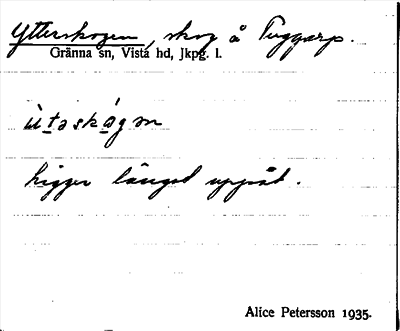 Ytterskogen, skog å Tuggarp.
Gränna sn, Vista hd, Jkpg. l.
ligger längst uppåt.
Alice Petersson 1935.